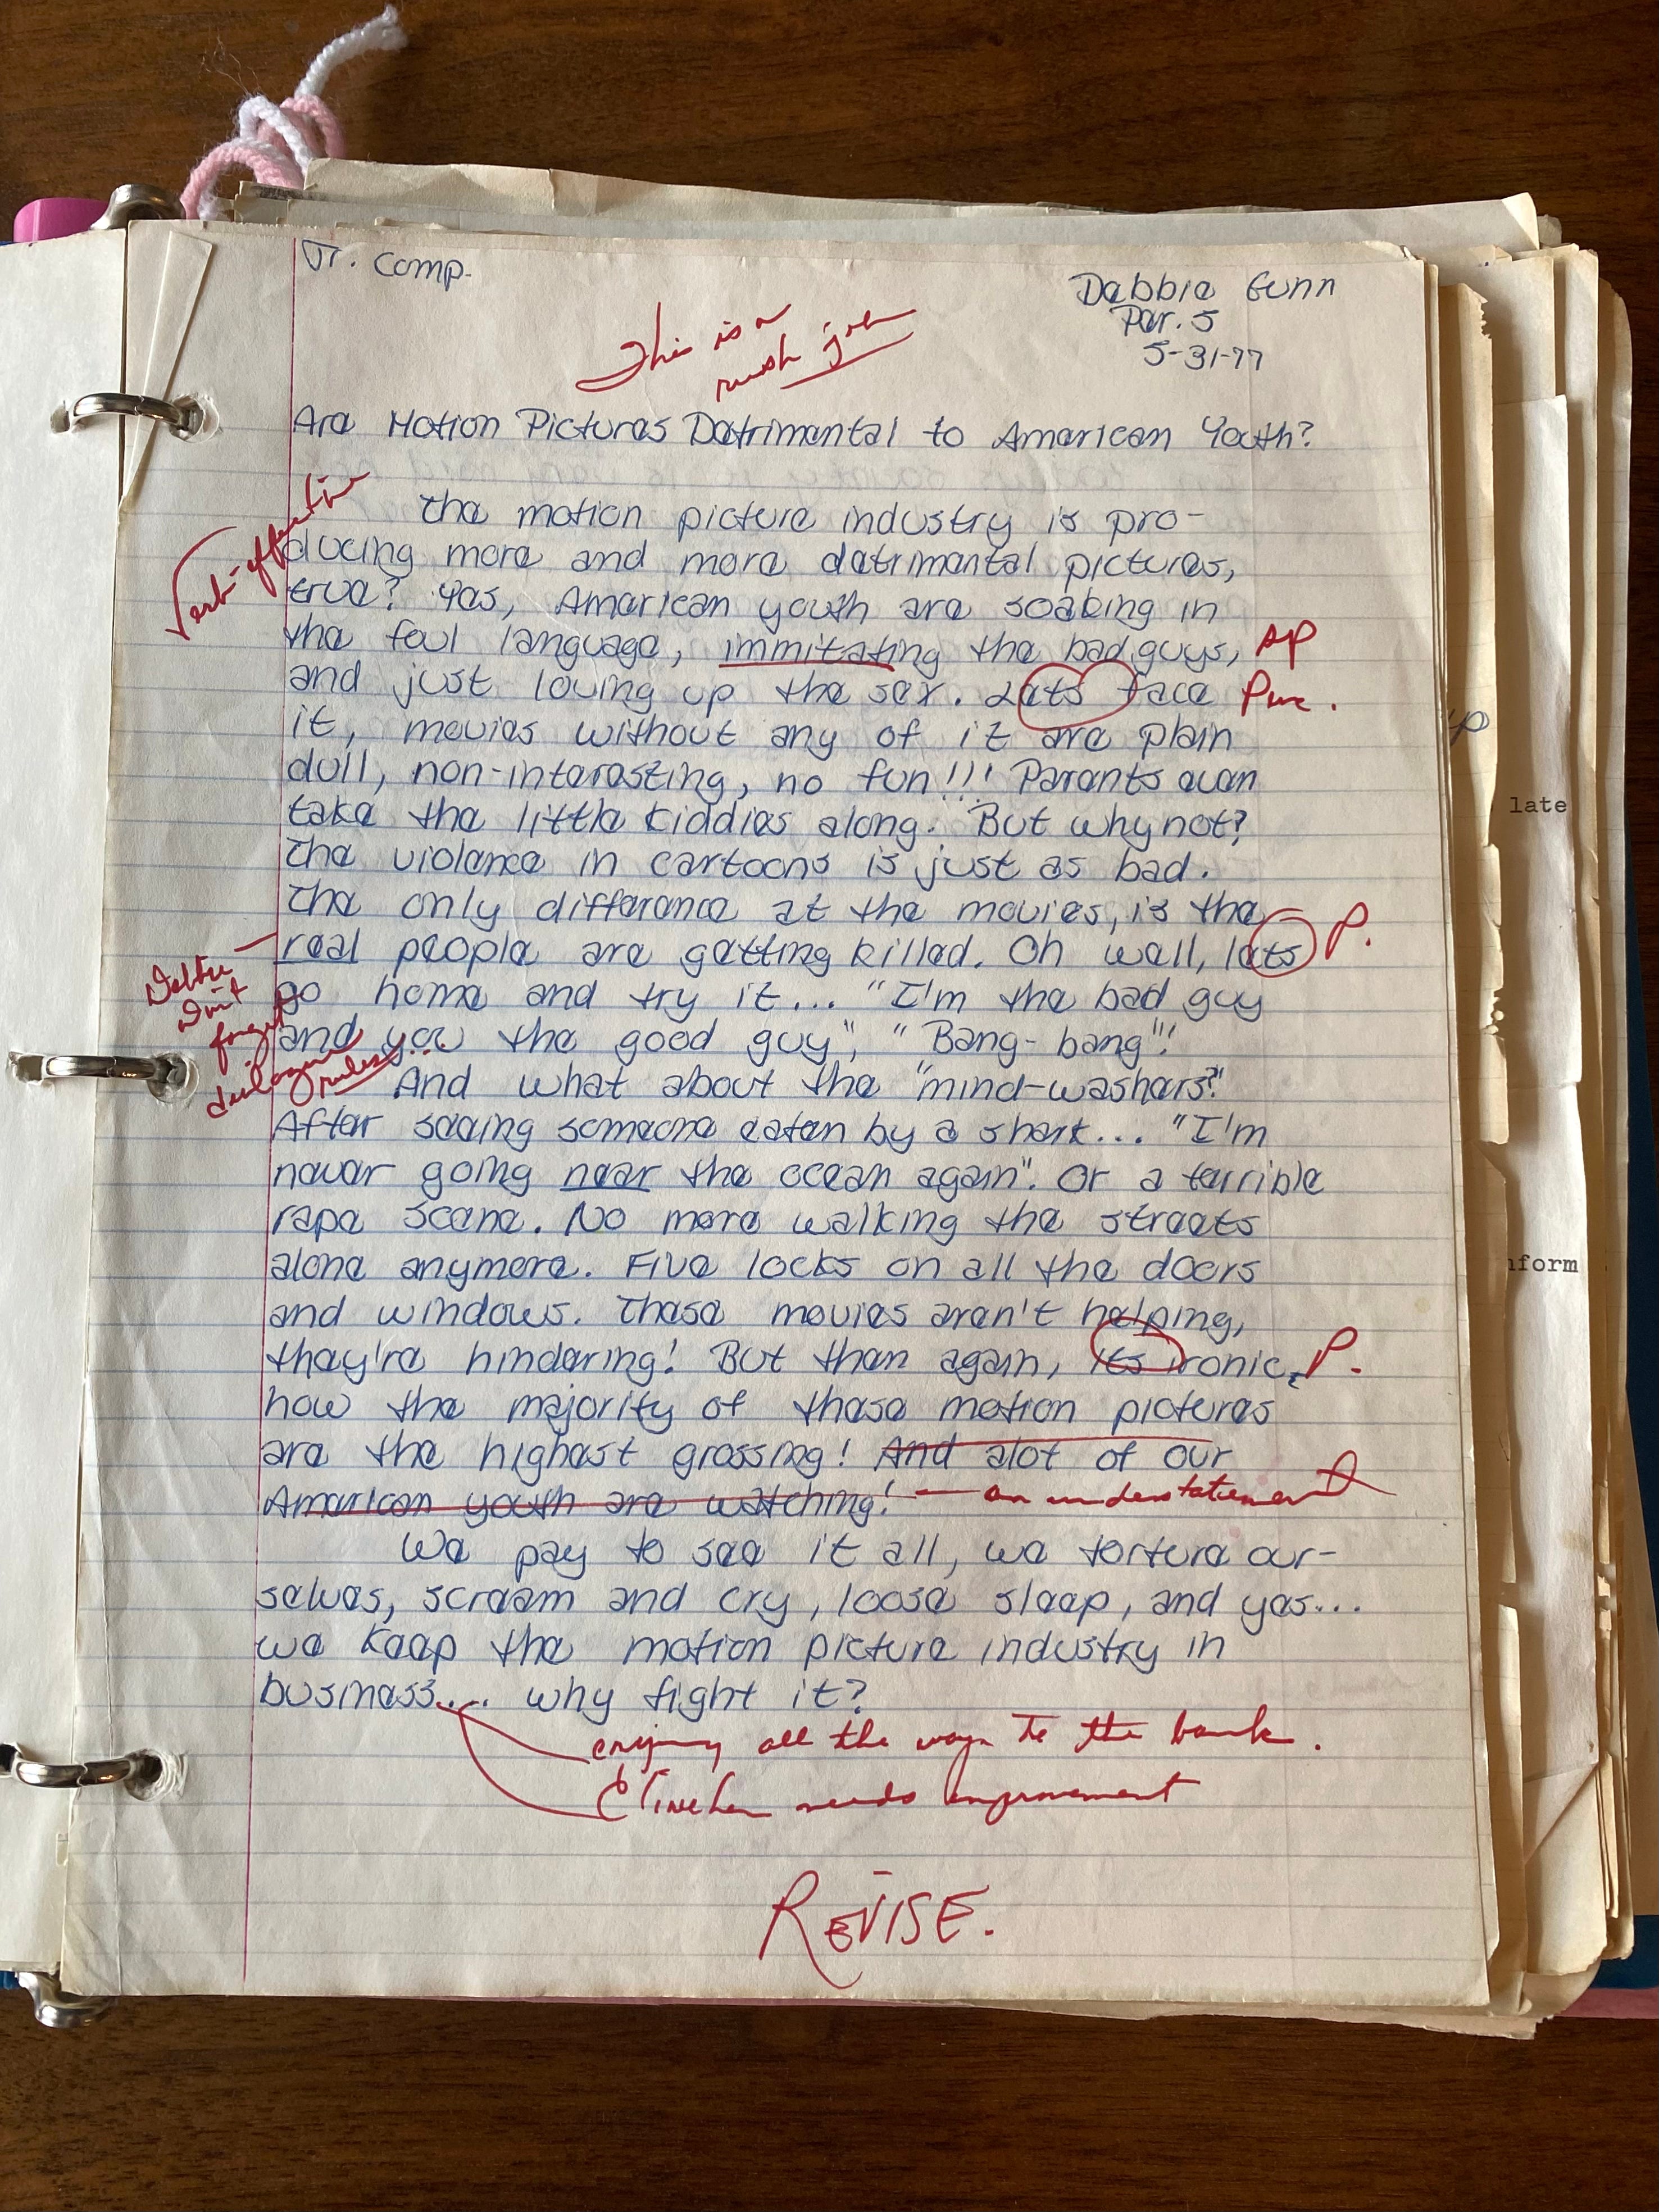 Jr. Comp.
Debbie Gunn
Par. 5
5-31-77
This is a
rush job
Are Motion Pictures Detrimental to American Youth?
Verb-effective
The motion picture industry is pro-
ducing more and more detrimental pictures,
true? Yes, American youth are soaking in
the foul language, immitating the bad guys, sp
and just loving up the sex. Lets face Punc.
it, movies without any of it are plain
dull, non-interesting, no fun!!! Parents even
take the little kiddies along. But why not?
The violence in cartoons is just as bad.
The only difference at the movies, is the
real people are getting killed. Oh well, lets P.
go home and try it... "I'm the bad guy
and you the good guy", "Bang-bang"!
Debbie
don't
forget
dialogue
rules...
And what about the "mind-washers?"
After seeing someone eaten by a shark... "I'm
never going near the ocean again". Or a terrible
rape scene. No more walking the streets
alone anymore. Five locks on all the doors
and windows. These movies aren't helping,
they're hindering! But then again, its ironic, P.
how the majority of these motion pictures
are the highest grossing! And alot of our
American youth are watching! — an understatement
We pay to see it all, we torture our-
selves, scream and cry, loose sleep, and yes...
we keep the motion picture industry in
business.... why fight it?
crying all the way to the bank.
Clincher needs improvement
REVISE.
late
nform